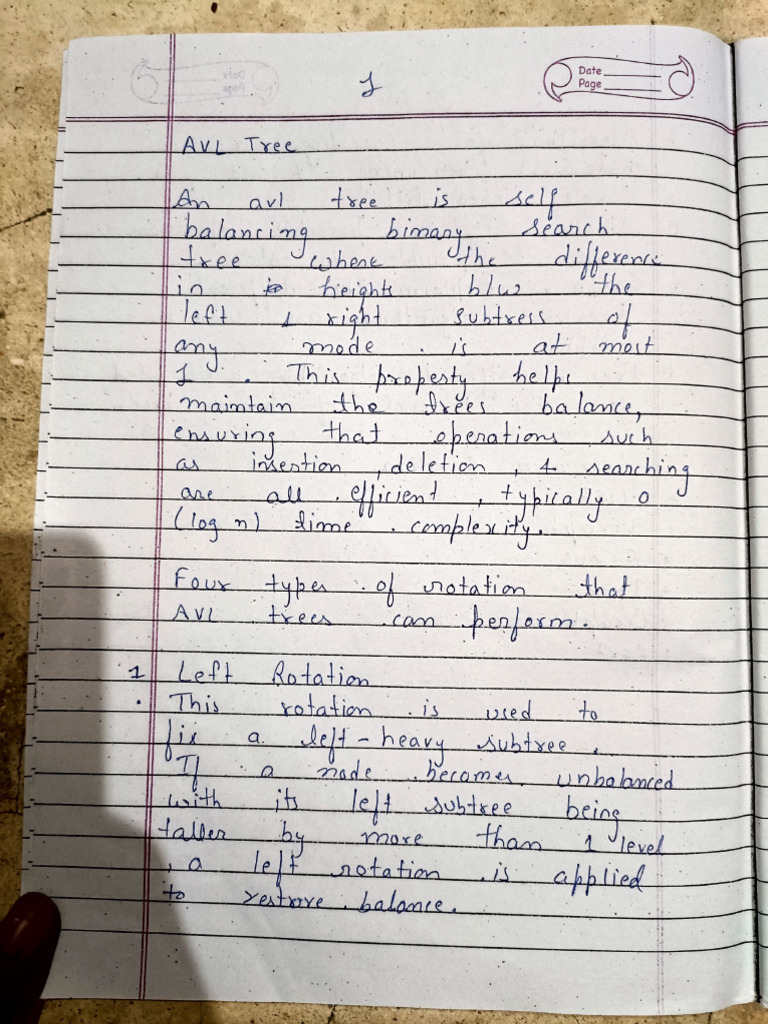 1
Date
Page
AVL Tree
An avl tree is self
balancing binary search
tree where the difference
in heights b/w the
left & right subtress of
any node is at most
1. This property helps
maintain the trees balance,
ensuring that operations such
as insertion, deletion, & searching
are all efficient, typically O
(log n) time complexity.
Four types of rotation that
AVL trees can perform.
1 Left Rotation
• This rotation is used to
fix a left-heavy subtree.
If a node becomes unbalanced
with its left subtree being
taller by more than 1 level
, a left rotation is applied
to restrore balance.